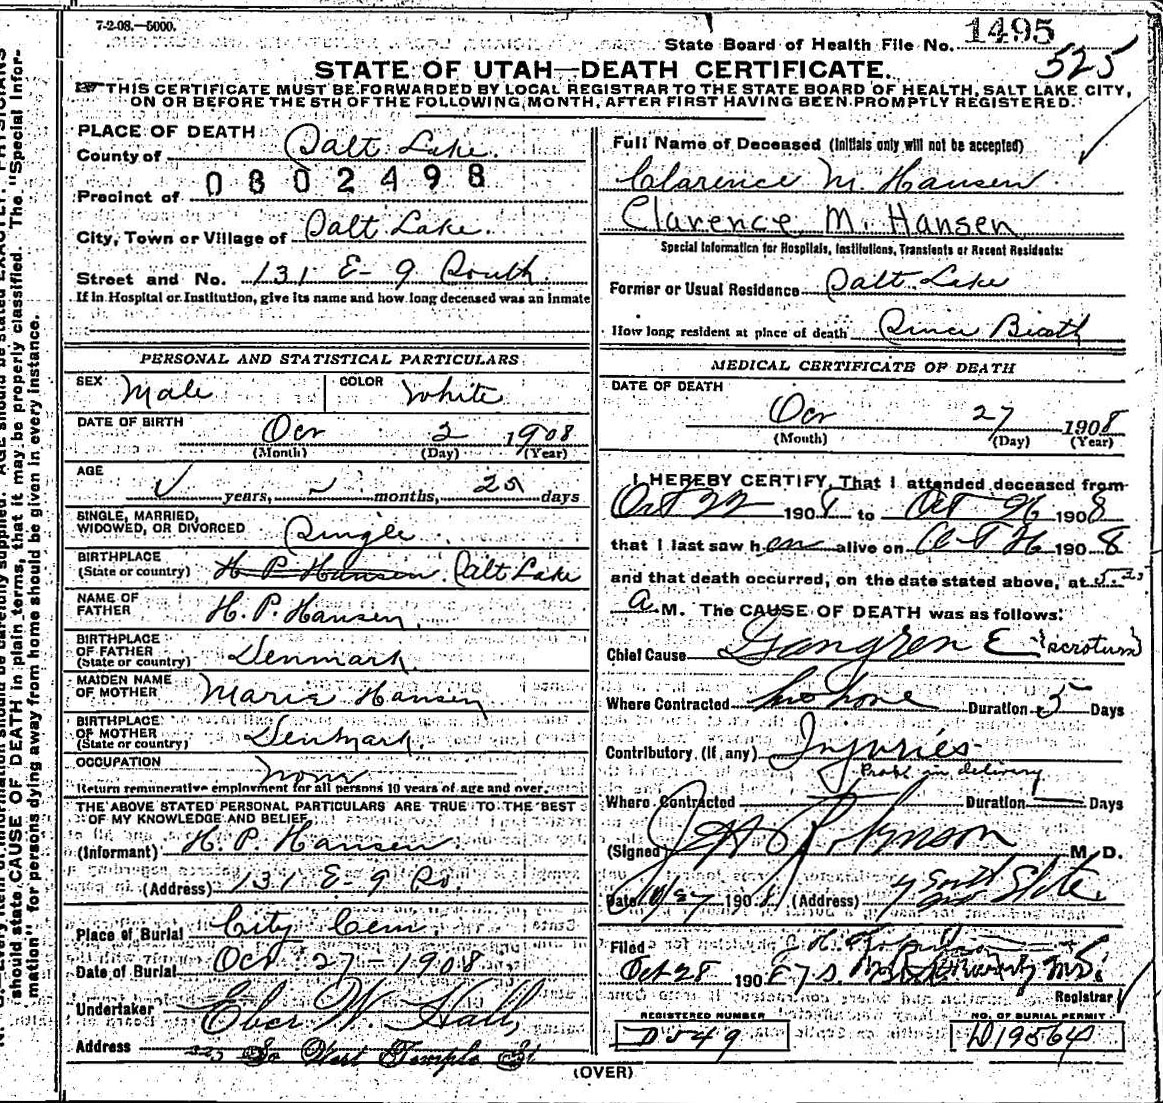 7-2-08.—5000.
State Board of Health File No. 1495
525
STATE OF UTAH—DEATH CERTIFICATE.
THIS CERTIFICATE MUST BE FORWARDED BY LOCAL REGISTRAR TO THE STATE BOARD OF HEALTH, SALT LAKE CITY,
ON OR BEFORE THE 5TH OF THE FOLLOWING MONTH, AFTER FIRST HAVING BEEN PROMPTLY REGISTERED.
PLACE OF DEATH
County of Salt Lake.
0802498
Precinct of
City, Town or Village of Salt Lake.
Street and No. 131 E-9 South.
If in Hospital or Institution, give its name and how long deceased was an inmate
PERSONAL AND STATISTICAL PARTICULARS
SEX Male COLOR White
DATE OF BIRTH Oct 2 1908
(Month) (Day) (Year)
AGE
years, months, 25 days
SINGLE, MARRIED,
WIDOWED, OR DIVORCED Single.
BIRTHPLACE
(State or country) H P Hansen. Salt Lake
NAME OF
FATHER H. P. Hansen.
BIRTHPLACE
OF FATHER
(State or country) Denmark.
MAIDEN NAME
OF MOTHER Marie Hansen
BIRTHPLACE
OF MOTHER
(State or country) Denmark.
OCCUPATION None
Return remunerative employment for all persons 10 years of age and over.
THE ABOVE STATED PERSONAL PARTICULARS ARE TRUE TO THE BEST
OF MY KNOWLEDGE AND BELIEF
(Informant) H. P. Hansen.
(Address) 131 E-9 So.
Place of Burial City Cem.
Date of Burial Oct 27-1908
Undertaker Eber W. Hall,
Address So West Temple St
Full Name of Deceased (Initials only will not be accepted)
Clarence M. Hansen
Clarence M. Hansen
Special Information for Hospitals, Institutions, Transients or Recent Residents:
Former or Usual Residence Salt Lake
How long resident at place of death Since Birth
MEDICAL CERTIFICATE OF DEATH
DATE OF DEATH
Oct 27 1908
(Month) (Day) (Year)
I HEREBY CERTIFY, That I attended deceased from
Oct 22 1908 to Oct 26 1908
that I last saw him alive on Oct 26 1908
and that death occurred, on the date stated above, at
a M. The CAUSE OF DEATH was as follows:
Chief Cause Gangrene (scrotum)
Where Contracted Duration 5 Days
Contributory (if any) Injuries
Prob. in delivery
Where Contracted Duration Days
(Signed) M. D.
Date 10/27 1908 (Address) South State.
Filed
Oct 28 1908
Registrar
REGISTERED NUMBER
D549
NO. OF BURIAL PERMIT
D19564
(OVER)
should state CAUSE OF DEATH in plain terms, that it may be properly classified. The "Special Infor-
mation" for persons dying away from home should be given in every instance.